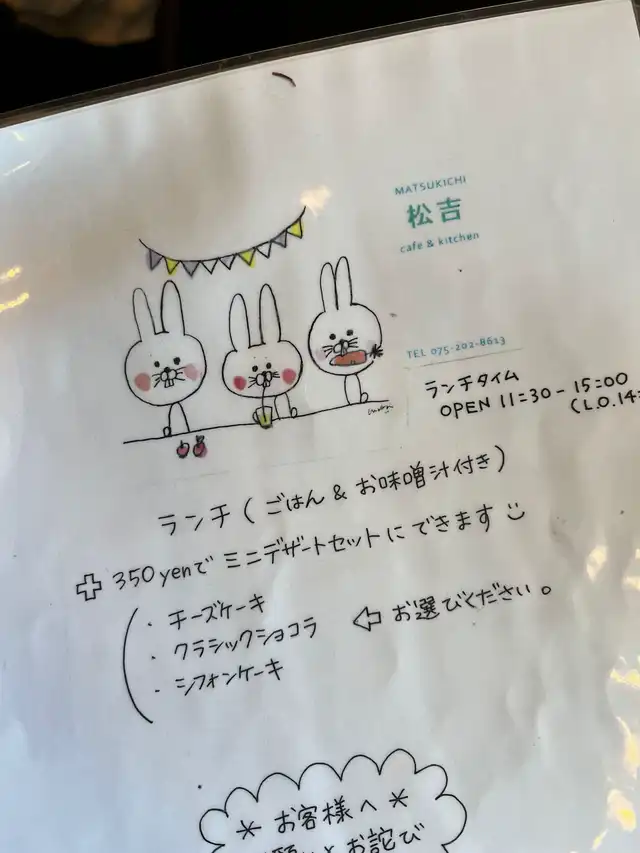 MATSUKICHI
松吉
cafe & kitchen
TEL 075-202-8613
ランチタイム
OPEN 11:30-15:00
(L.O.14:
ランチ(ごはん & お味噌汁付き)
350yenで ミニデザートセットにできます
・チーズケーキ
・クラシックショコラ
・シフォンケーキ
⇦ お選びください。
* お客様へ *
お詫び